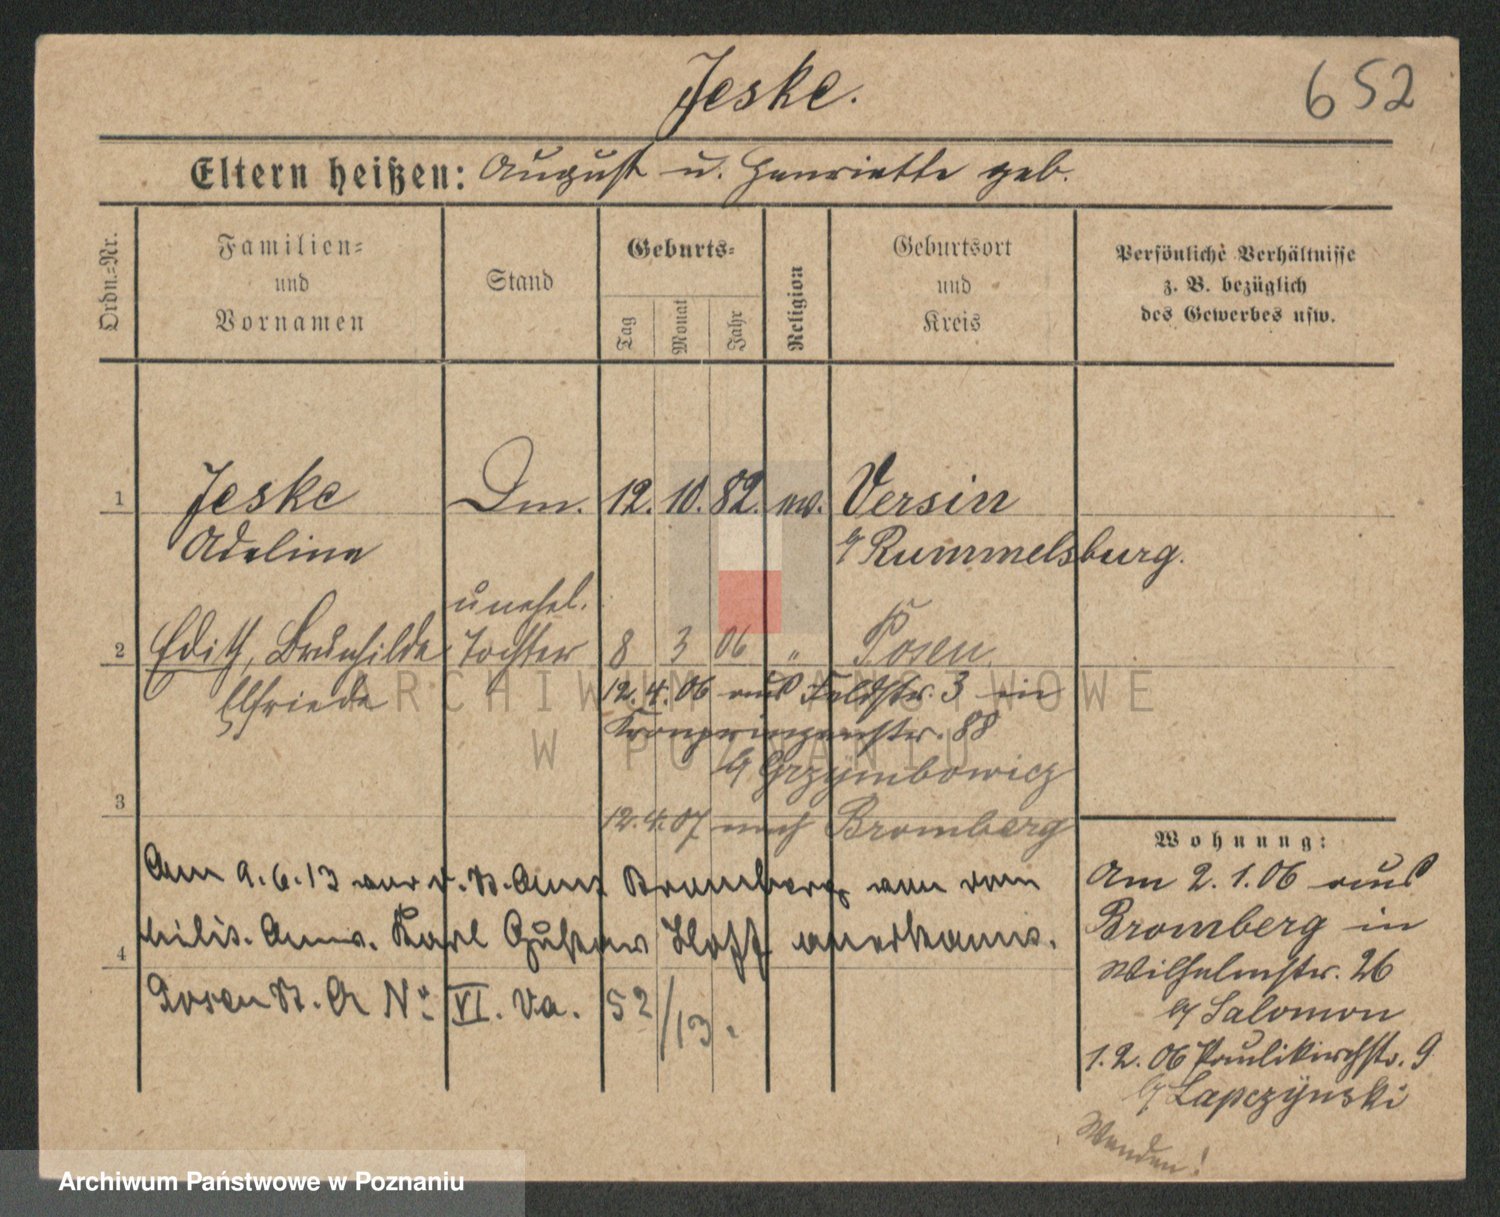 Jeske.
652
Eltern heißen: August u. Henriette geb.
Ordn.=Nr.
Familien=
und
Vornamen
Stand
Geburts=
Tag
Monat
Jahr
Religion
Geburtsort
und
Kreis
Persönliche Verhältnisse
z. B. bezüglich
des Gewerbes usw.
1 Jeske Dm. 12. 10. 82. ev. Versin
Adeline Rummelsburg.
unehel.
2 Edith, Brunhilde Tochter 8 3 06 " Posen
Elfriede
12. 4. 06 aus Feldstr. 3 in
Kronprinzenstr. 88
b/ Grzymbowicz
3
12. 4. 07 nach Bromberg
Am 9. 6. 13 vor d. St. Amt Bromberg von
Karl Gustav anerkannt.
4
Posen St. A No VI. Va. 52/13.
Wohnung:
Am 2. 1. 06 aus
Bromberg in
Wilhelmstr. 26
b/ Salomon
1. 2. 06 Paulikirchstr. 9
b/ Lapczynski
Wenden!
ARCHIWUM PAŃSTWOWE
W POZNANIU
Archiwum Państwowe w Poznaniu